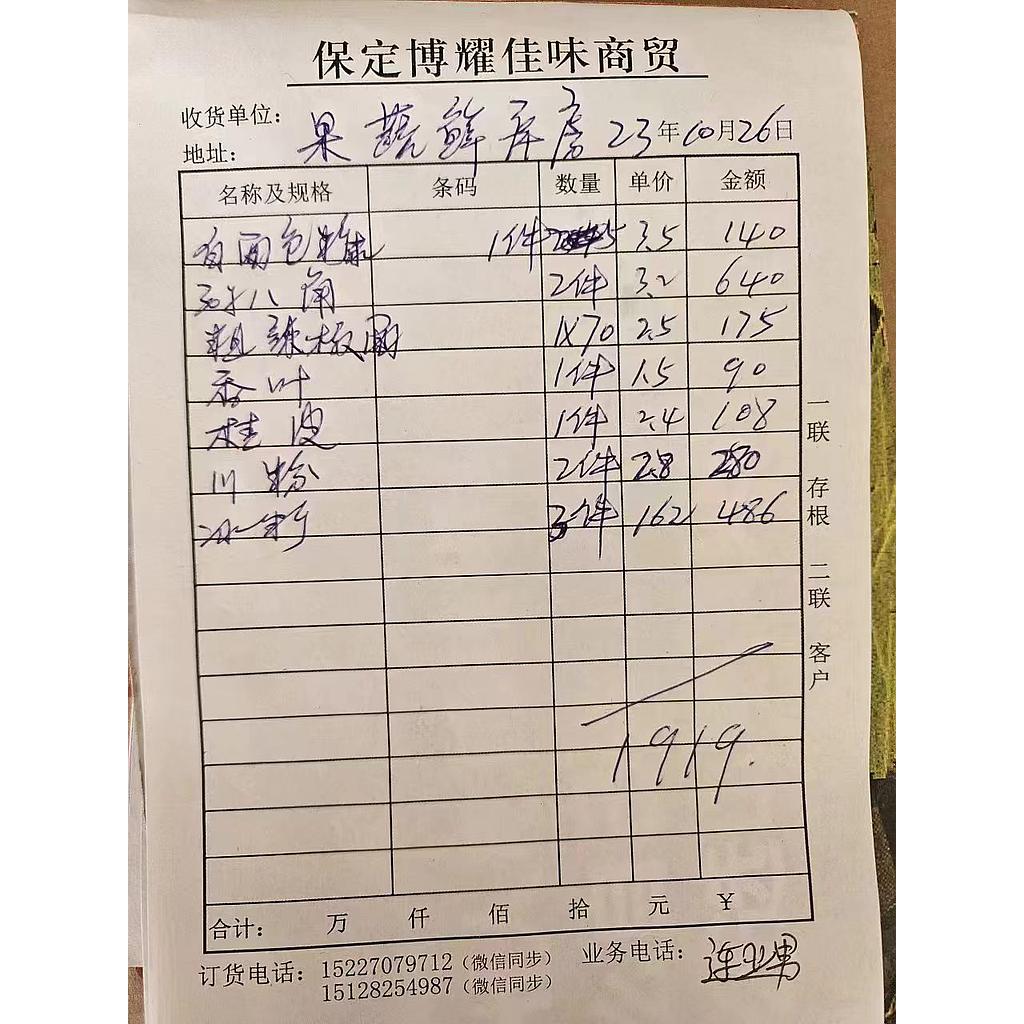 保定博耀佳味商贸
收货单位：
地址： 果蔬鲜库房 23年10月26日
名称及规格 条码 数量 单价 金额
白面包糠 1件 3.5 140
八角 2件 3.2 640
粗辣椒圈 1X70 2.5 175
香叶 1件 1.5 90
桂皮 1件 2.4 108
川粉 2件 2.8 280
冰 3件 162 486
1919.
合计： 万 仟 佰 拾 元 ¥
订货电话：15227079712（微信同步） 业务电话：
15128254987（微信同步）
一联 存根 二联 客户